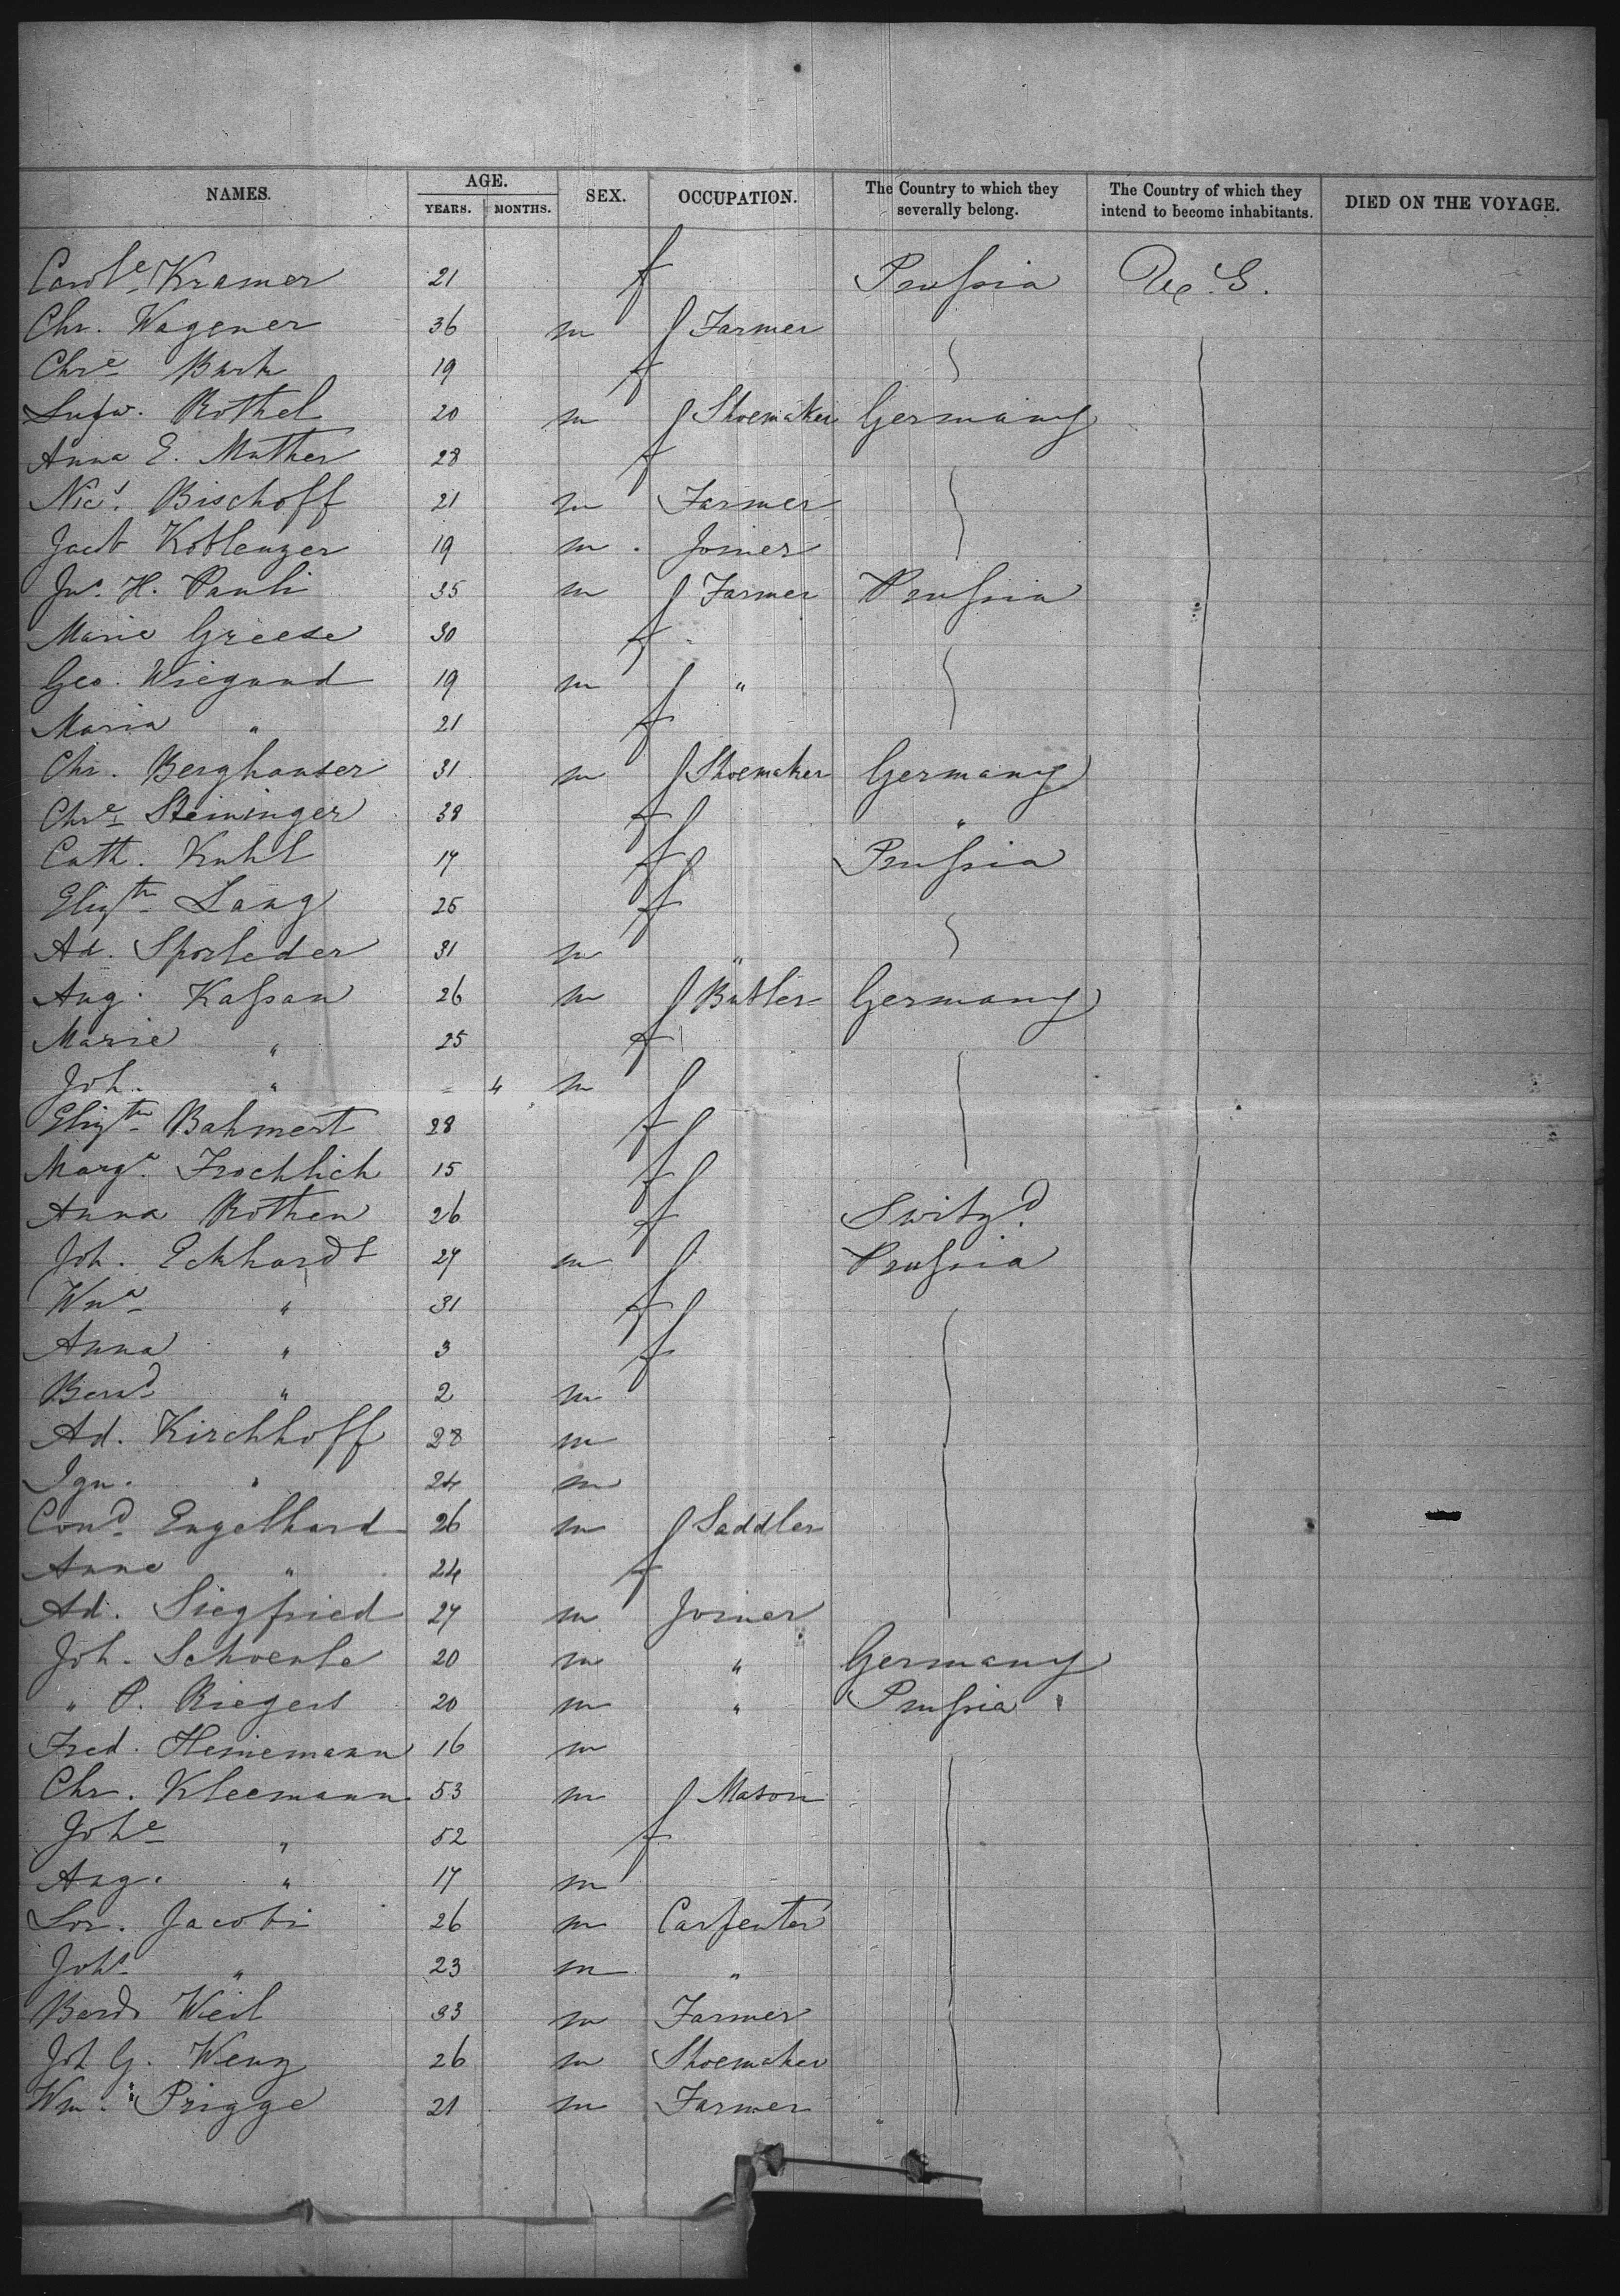 NAMES. AGE. SEX. OCCUPATION. The Country to which they severally belong. The Country of which they intend to become inhabitants. DIED ON THE VOYAGE.
YEARS. MONTHS.
Carole Kramer 21 f Prussia U. S.
Chr. Wagener 36 m Farmer
Chre 19 f
Rothel 20 m Shoemaker Germany
Anna E. Muther 28 f
Nics. Bischoff 21 m Farmer
Jacb Koblenzer 19 m Joiner
Jno. H. Pauli 35 m Farmer Prussia
Marie Greese 30 f
Geo. Wiegand 19 m "
Maria " 21 f
Chr. Berghauser 31 m Shoemaker Germany
Chre Steininger 38 f "
Cath. Kuhl 17 f Prussia
Elizth Lang 25 f
Ad. Sporleder 31 m "
Aug. Kassan 26 m Butler Germany
Marie " 25 f
Joh. " = 4 m
Elizth Bahmert 28 f
Marga. Froehlich 15 f
Anna Rothen 26 f Switzd.
Joh. Eckhardt 27 m Prussia
Wma " 31 f
Anna " 3 f
Bernd " 2 m
Ad. Kirchhoff 28 m
Ign. " 24 m
Cond Engelhard 26 m Saddler
Anna " 24 f
Ad. Siegfried 27 m Joiner
Joh. Schoenle 20 m " Germany
" P. Riegert 20 m " Prussia
Fred. Heinemann 16 m
Chr. Kleemann 53 m Mason
Johe " 52 f
Aug. " 17 m
Lor. Jacobi 26 m Carpenter
Johs " 23 m "
Bard Weil 33 m Farmer
Joh G. Wenz 26 m Shoemaker
Wm. Prigge 21 m Farmer